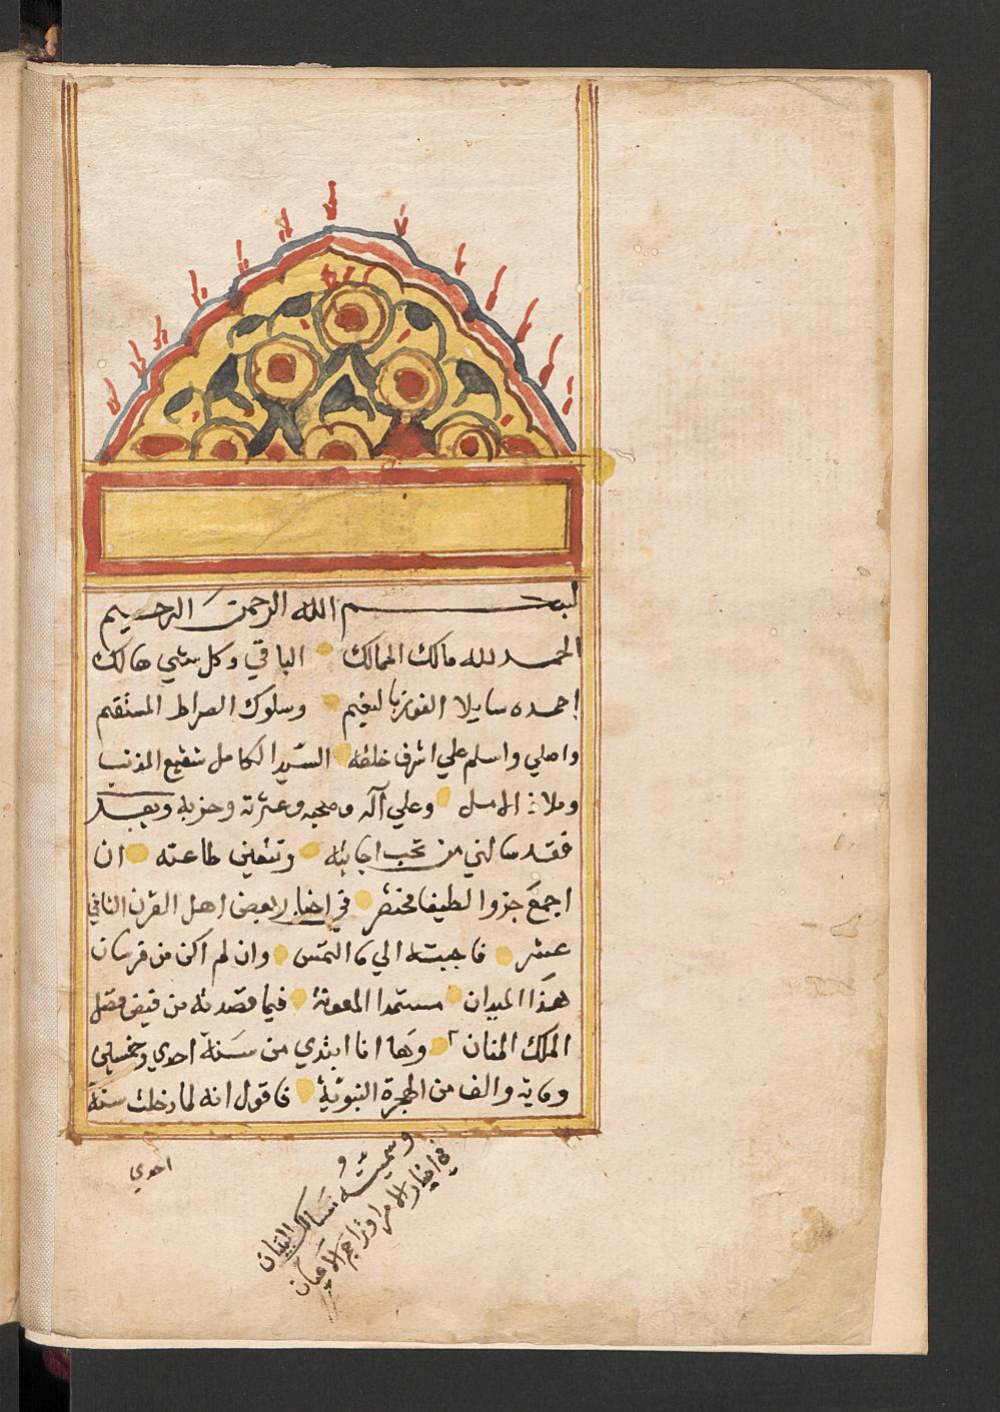 بســــم الله الرحمن الرحيم
الحمد لله مالك الممالك الباقي وكل شي هالك
احمده سايلا الفوز بالنعيم وسلوك الصراط المستقيم
واصلي واسلم علي اشرف خلقه السيد الكامل شفيع المذنب
وملاذ الامل وعلي آله وصحبه وعترته وحزبه وبعد
فقد سالني من تجب اجابته وتتعين طاعته ان
اجمع جزوا لطيفا مختصر في اخبار بعض اهل القرن الثاني
عشر فاجبته الي ما التمس وان لم اكن من فرسان
هذا الميدان مستمدا المعونة فيما قصدته من فيض فضل
الملك المنان وها انا ابتدي من سنة احدي وخمسين
وماية والف من الهجرة النبوية فاقول انه لما دخلت سنة
احدي
وسميته و مسالك
في اخبار الامرا وتراجم الاعيان